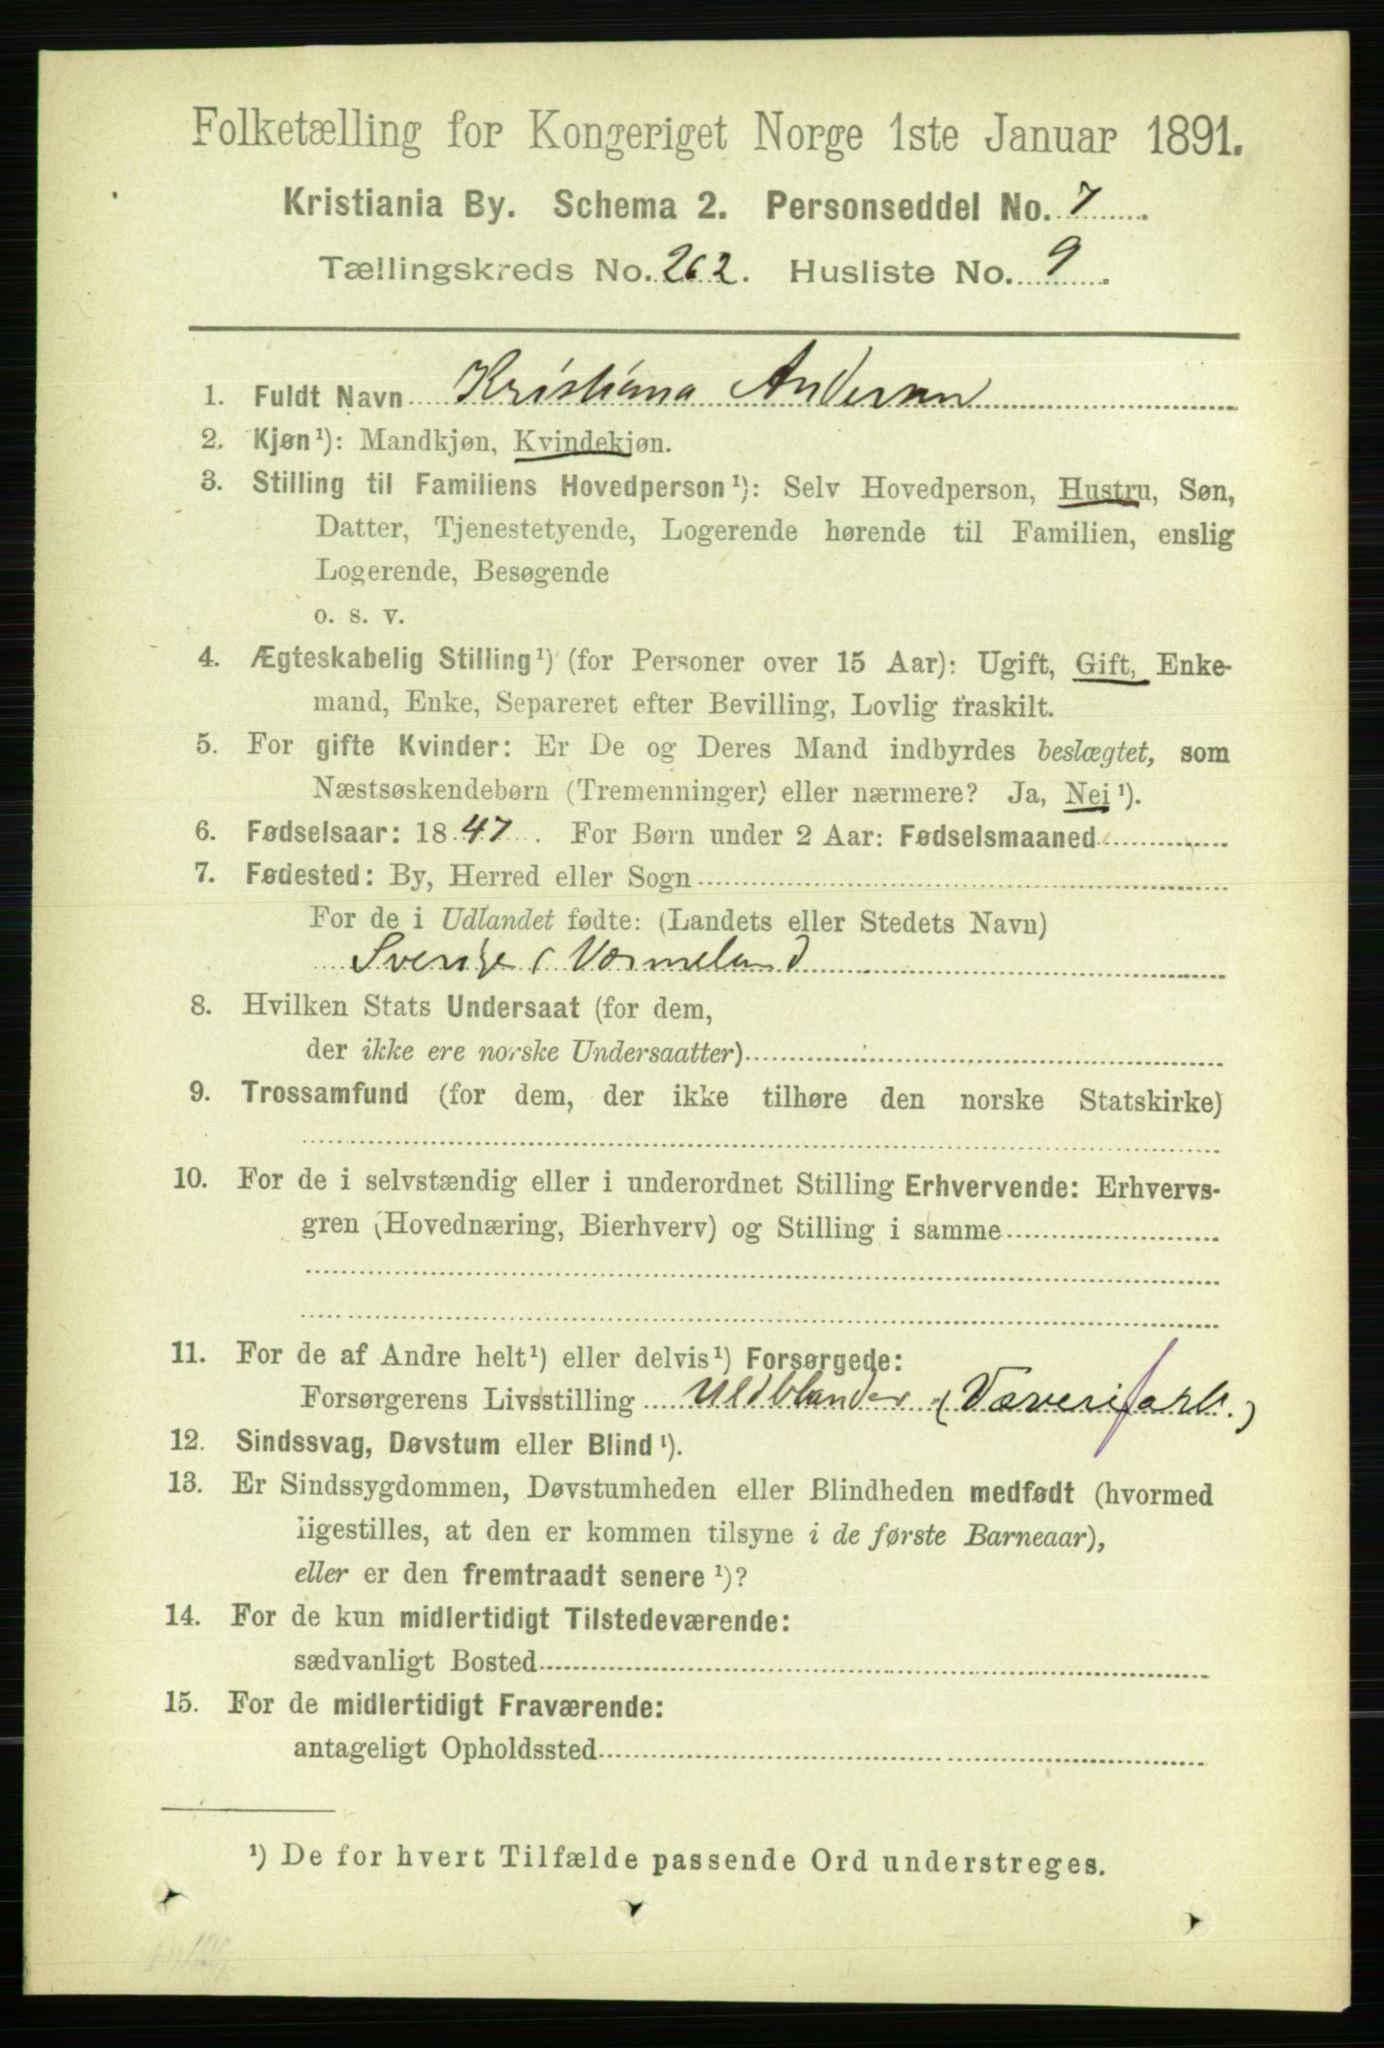 Folketælling for Kongeriget Norge 1ste Januar 1891.
Kristiania By. Schema 2. Personseddel No. 7
Tællingskreds No. 262. Husliste No. 9.
1. Fuldt Navn Kristiana Andersen
2. Kjøn¹): Mandkjøn, Kvindekjøn.
3. Stilling til Familiens Hovedperson¹): Selv Hovedperson, Hustru, Søn,
Datter, Tjenestetyende, Logerende hørende til Familien, enslig
Logerende, Besøgende
o. s. v.
4. Ægteskabelig Stilling¹) (for Personer over 15 Aar): Ugift, Gift, Enke-
mand, Enke, Separeret efter Bevilling, Lovlig fraskilt.
5. For gifte Kvinder: Er De og Deres Mand indbyrdes beslægtet, som
Næstsøskendebørn (Tremenninger) eller nærmere? Ja, Nei¹).
6. Fødselsaar: 1847. For Børn under 2 Aar: Fødselsmaaned
7. Fødested: By, Herred eller Sogn
For de i Udlandet fødte: (Landets eller Stedets Navn)
Sverige ( Vermeland
8. Hvilken Stats Undersaat (for dem,
der ikke ere norske Undersaatter)
9. Trossamfund (for dem, der ikke tilhøre den norske Statskirke)
10. For de i selvstændig eller i underordnet Stilling Erhvervende: Erhvervs-
gren (Hovednæring, Bierhverv) og Stilling i samme
11. For de af Andre helt¹) eller delvis¹) Forsørgede:
Forsørgerens Livsstilling Uldblander (Væverifarb.)
12. Sindssvag, Døvstum eller Blind¹).
13. Er Sindssygdommen, Døvstumheden eller Blindheden medfødt (hvormed
ligestilles, at den er kommen tilsyne i de første Barneaar),
eller er den fremtraadt senere¹)?
14. For de kun midlertidigt Tilstedeværende:
sædvanligt Bosted
15. For de midlertidigt Fraværende:
antageligt Opholdssted
¹) De for hvert Tilfælde passende Ord understreges.